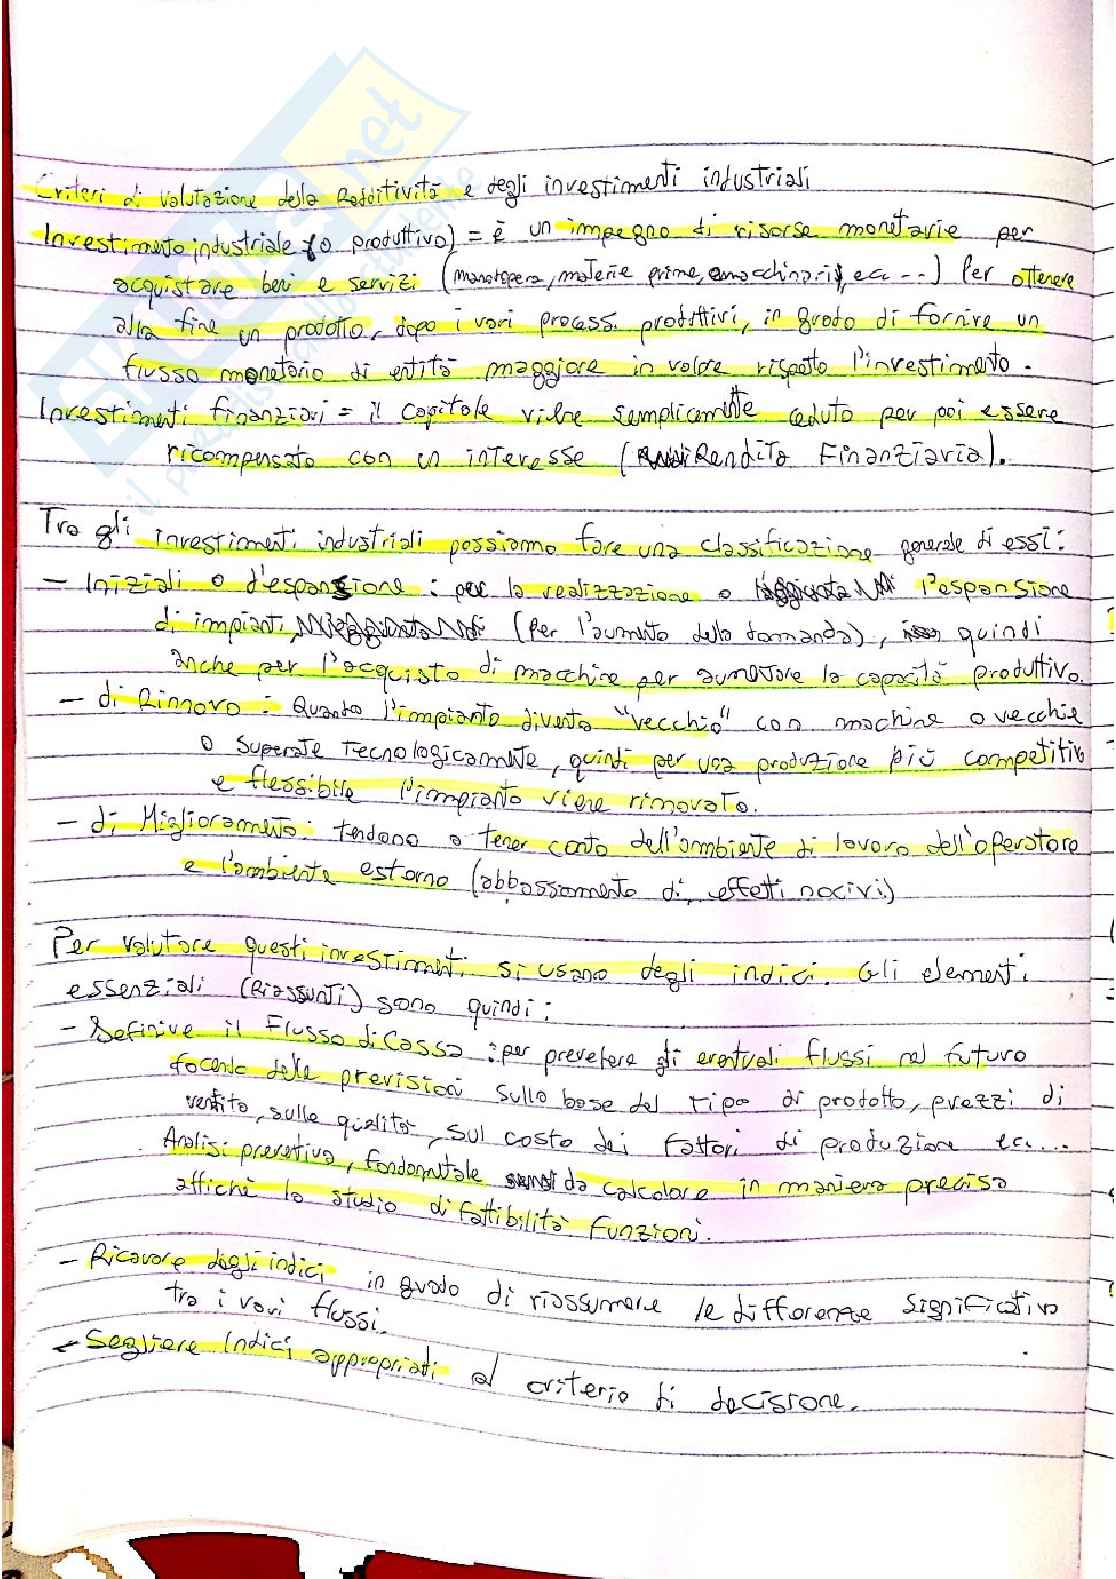 Criteri di Valutazione della Redditività e degli investimenti industriali
Investimento industriale (o produttivo) = è un impegno di risorse monetarie per
acquistare beni e servizi (manodopera, materie prime, macchinari, ecc --) Per ottenere
alla fine un prodotto, dopo i vari processi produttivi, in grado di fornire un
flusso monetario di entità maggiore in valore rispetto l'investimento.
Investimenti finanziari = il capitale viene semplicemente ceduto per poi essere
ricompensato con un interesse (Rendita Finanziaria).
Tra gli investimenti industriali possiamo fare una classificazione generale di essi:
- Iniziali o d'espansione : per la realizzazione o l'espansione
di impianti, (Per l'aumento della domanda), quindi
anche per l'acquisto di macchine per aumentare la capacità produttiva.
- di Rinnovo : Quando l'impianto diventa "vecchio" con machine o vecchie
o superate tecnologicamente, quindi per una produzione più competitiva
e flessibile l'impianto viene rinnovato.
- di Miglioramento : tendono a tener conto dell'ambiente di lavoro dell'operatore
e l'ambiente esterno (abbassamento di effetti nocivi)
Per valutare questi investimenti si usano degli indici. Gli elementi
essenziali (Riassunti) sono quindi :
- Definire il Flusso di Cassa : per prevedere gli eventuali flussi nel futuro
facendo delle previsioni sulla base del tipo di prodotto, prezzi di
vendita, sulle qualità, sul costo dei fattori di produzione ec....
Analisi preventiva, fondamentale da calcolare in maniera precisa
affinché lo studio di fattibilità funzioni.
- Ricavare degli indici in grado di riassumere le differenze significative
tra i vari flussi.
- Scegliere Indici appropriati al criterio di decisione.